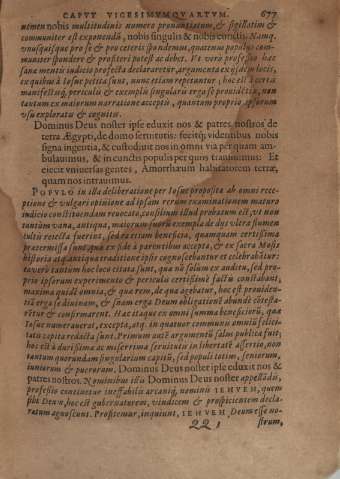 CAPVT VIGESIMVMQVARTVM. 677
nomen nobis multitudinis nomero pronuntiatum, & sigillatim &
communiter est exponendũ, nobis singulis & nobis cunctis. Namq́.
vnusquisque pro se & pro ceteris spondemus, quatenus populus com-
muniter spondere & profiteri potest ac debet. Vt verò professio hæc
sanæ mentis iudicio profecta declararetur, argumenta ex ijsdem locis,
ex quibus à Iosue petita sunt, nunc etiam repetuntur, hoc est à certa
manifestaq́, periculi & exemplis singularis erga se prouidẽtia, non
tantum ex maiorum narratione acceptis, quantum proprio ipsorum
vsu explorato & cognito.
Dominus Deus noster ipse eduxit nos & patres nostros de
terra Ægypti, de domo seruitutis: fecitq́; videntibus nobis
signa ingentia, & custodiuit nos in omni via per quam am-
bulauimus, & in cunctis populis per quos transiuimus: Et
eiecit vniuersas gentes, Amorrhæum habitatorem terræ,
quam nos intrauimus.
POPVLO in illa deliberatione per Iosue proposita ab omni rece-
ptione & vulgari opinione ad ipsam rerum examinationem maturo
iudicio constituendam reuocato, consilium illud probatum est, vt non
tantùm vana, antiqua, maiorum suorũ exempla de dijs vltra flumen
cultis reiecta fuerint, sed ea etiam beneficia, quamquam certissima
prætermissa sunt, quæ ex fide à parentibus accepta, & ex sacra Mosis
historia atq. antiqua traditione ipsis cognoscebantur et celebrabãtur:
ea verò tantum hoc loco citata sunt, quæ nõ solùm ex auditu, sed pro-
prio ipsorum experimento & periculo certissimè factũ constabant,
maxima quidẽ omnia, & quæ rem, de qua agebatur, hoc est prouiden-
tiã erga se diuinam, & suam erga Deum obligationẽ abundè cõtesta-
rẽtur & confirmarent. Hac itaque ex omni summa beneficiorũ, quæ
Iosue numerauerat, excepta, atq. in quatuor communis omniũ felici-
tatis capita redacta sunt. Primum autẽ argumentũ salus publica fuit,
hoc est à durissima ac miserrima seruitute in libertatẽ assertio, non
tantum quorundam singularium capitũ, sed populi totius, seniorum,
iuniorum & puerorum. Dominus Deus noster ipse eduxit nos &
patres nostros. Nominibus illis Dominus Deus noster appellãdi,
professio continetur ineffabilis arcaniq́, nominis IEHVEH, quem
sibi Deum, hoc est gubernatorem, vindicem & prospicientem decla-
ratum agnoscunt. Profitemur, inquiunt, IEHVEH Deum esse no-
221 strum,